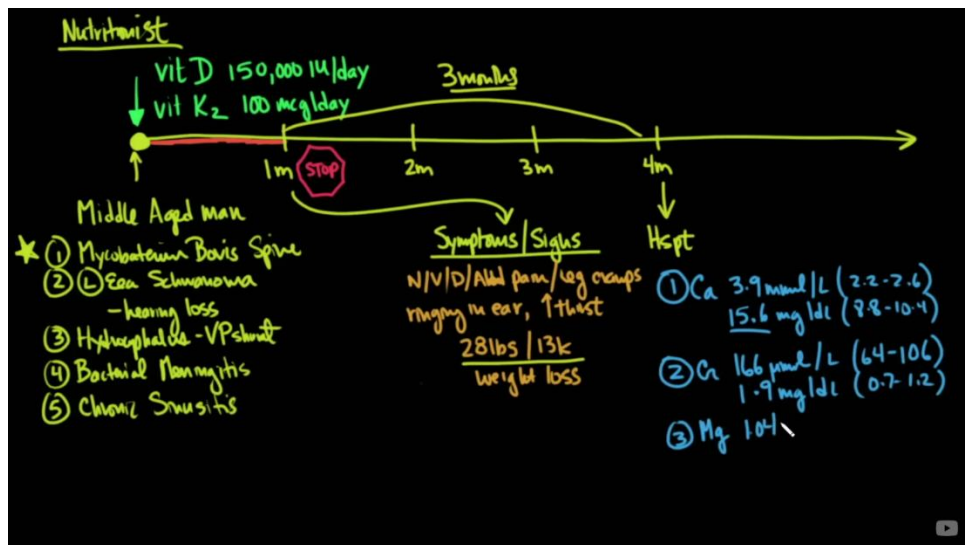 Nutritonist
vit D 150,000 IU/day
vit K2 100 mcg/day
3 months
1m
STOP
2m
3m
4m
Middle Aged man
① Mycobaterium Bovis Spine
② Ⓛ Ear Schwanoma
- hearing loss
③ Hydrocphalus - VP shunt
④ Bacterial Meningitis
⑤ Chronic Sinusitis
Symptoms/Signs
N/V/D/Abd pain/leg cramps
ringing in ear, ↑ thirst
28lbs / 13k
weight loss
Hspt
① Ca 3.9 mmol/L (2.2-2.6)
15.6 mg/dL (8.8-10.4)
② Cr 166 µmol/L (64-106)
1.9 mg/dL (0.7-1.2)
③ Mg 1.04